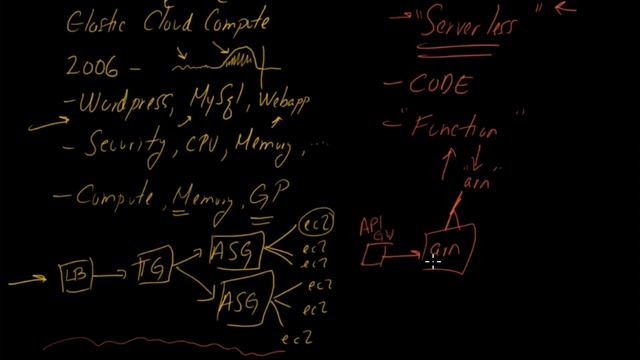 Elastic Cloud Compute
2006 -
- Wordpress, MySql, Webapp
- Security, CPU, Memory, ...
- Compute, Memory, GP
LB
TG
ASG
ASG
ec2
ec2
ec2
ec2
ec2
ec2
"Serverless"
- CODE
- "Function"
"arn"
API
GW
arn